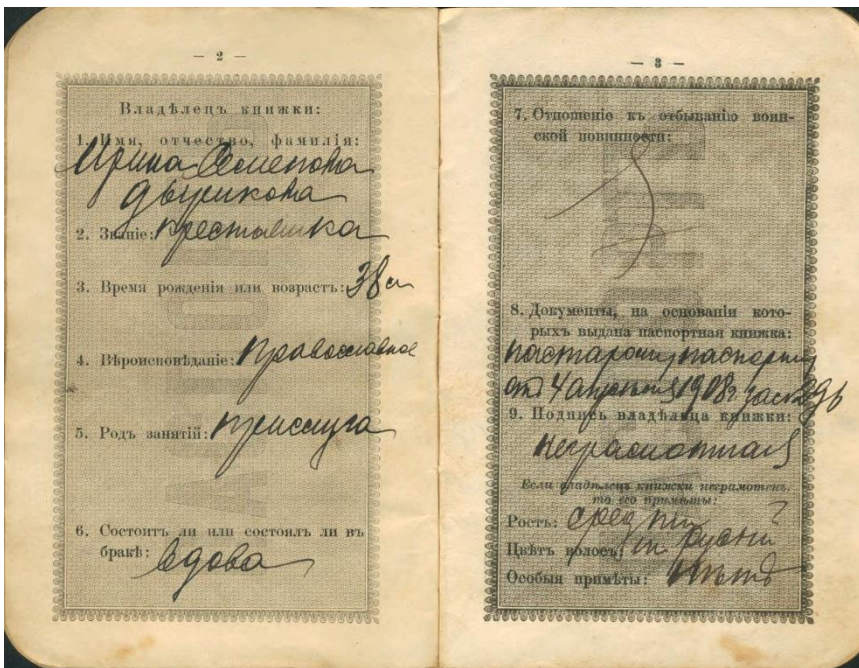 — 2 —
Владѣлецъ книжки:
1. Имя, отчество, фамилія:
Ирина Семенова
2. Званіе: крестьянка
3. Время рожденія или возрастъ: 38 л
4. Вѣроисповѣданіе: православное
5. Родъ занятій: прислуга
6. Состоитъ ли или состоялъ ли въ
бракѣ: вдова
— 3 —
7. Отношеніе къ отбыванію воин-
ской повинности:
8. Документы, на основаніи кото-
рыхъ выдана паспортная книжка:
по старому паспорту
от 4 апреля 1908 г за №
9. Подпись владѣльца книжки:
неграмотная
Если владѣлецъ книжки неграмотенъ,
то его примѣты:
Ростъ: средній
Цвѣтъ волосъ: т. русый
Особыя примѣты: нѣтъ